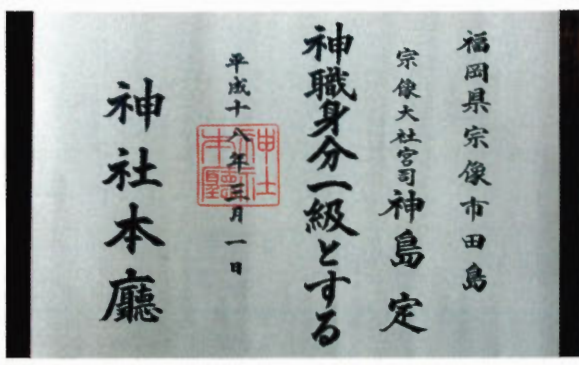 福岡県宗像市田島
宗像大社宮司 神島定
神職身分一級とする
平成十八年三月一日
神社本廳
神社本廳印